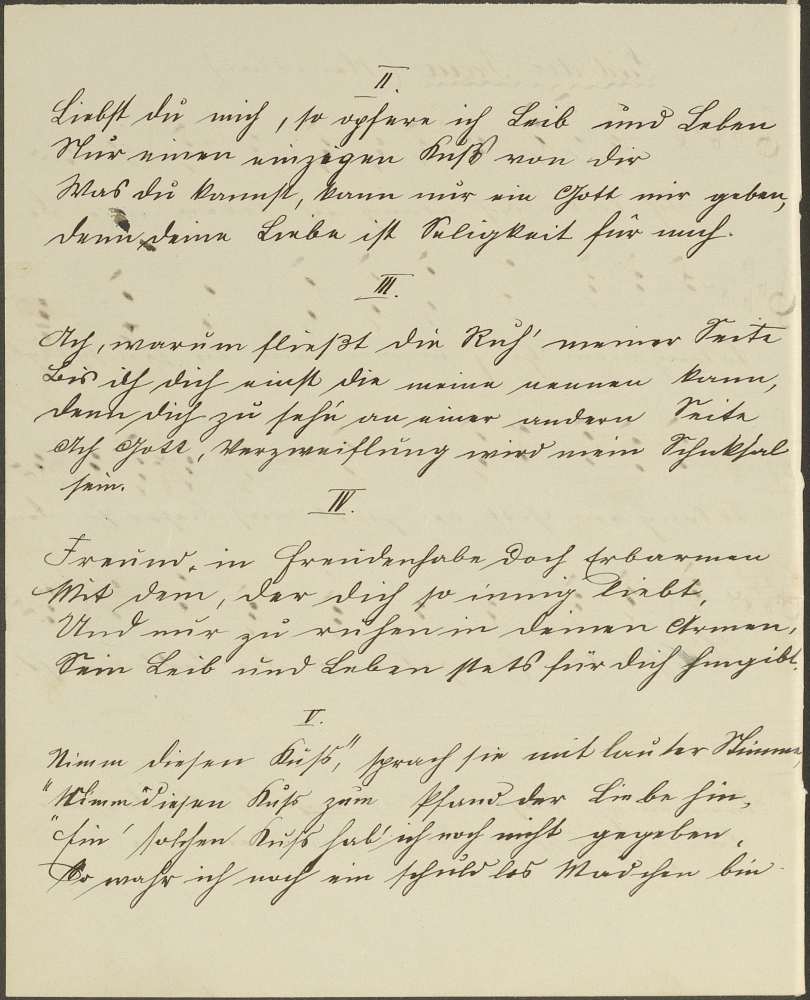 II.
Liebst du mich, so opfere ich Leib und Leben
Nur einen einzigen Kuß von dir
Was du kannst, kann nur ein Gott mir geben,
denn deine Liebe ist Seligkeit für mich.
III.
Ach, warum fließt die Ruh' meiner Seite
Bis ich dich einst die meine nennen kann,
denn dich zu seh'n an einer andern Seite
Ach Gott, Verzweiflung wird mein Schicksal
sein.
IV.
Freund, in Freuden habe doch Erbarmen
Mit dem, der dich so innig liebt,
Und nur zu ruhen in deinen Armen,
Sein Leib und Leben stets für dich hingibt.
V.
Nimm diesen Kuß," sprach sie mit lauter Stimme,
"Nimm diesen Kuß zum Pfand der Liebe hin,
"Ein' solchen Kuß hab' ich noch nicht gegeben,
So wahr ich noch ein schuldlos Mädchen bin.